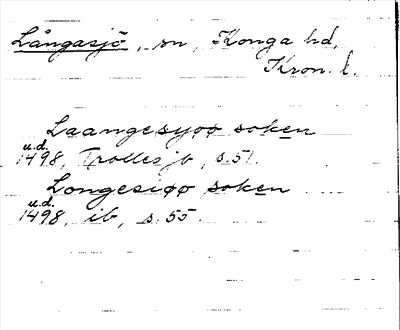 Långasjö, sn, Konga hd,
Kron. l.
Laangesyoo soken
u.d.
1498, Trolles jb, s. 51.
Longesiøø soken
u.d.
1498, ib, s. 55.